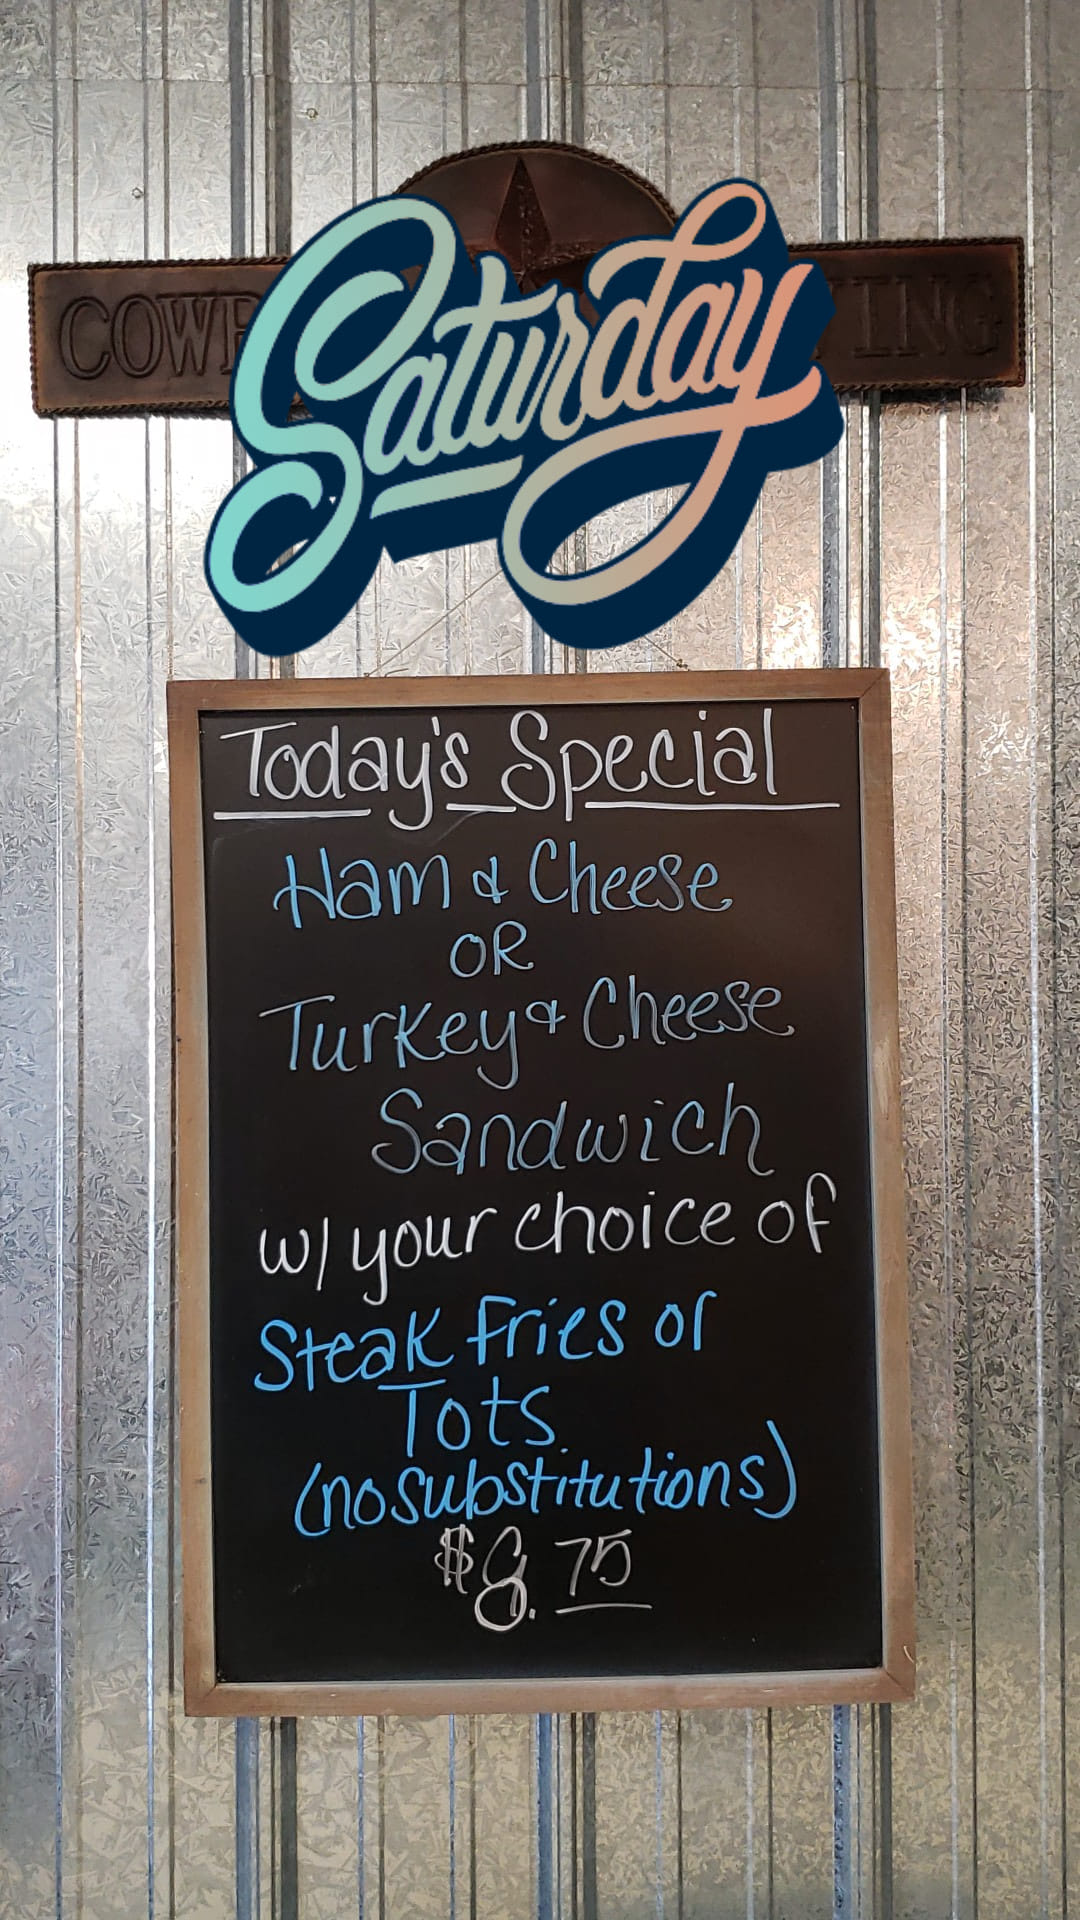 COW
ING
Saturday
Today's Special
Ham & Cheese
OR
Turkey & Cheese
Sandwich
w/ your choice of
Steak Fries or
Tots.
(no substitutions)
$8.75